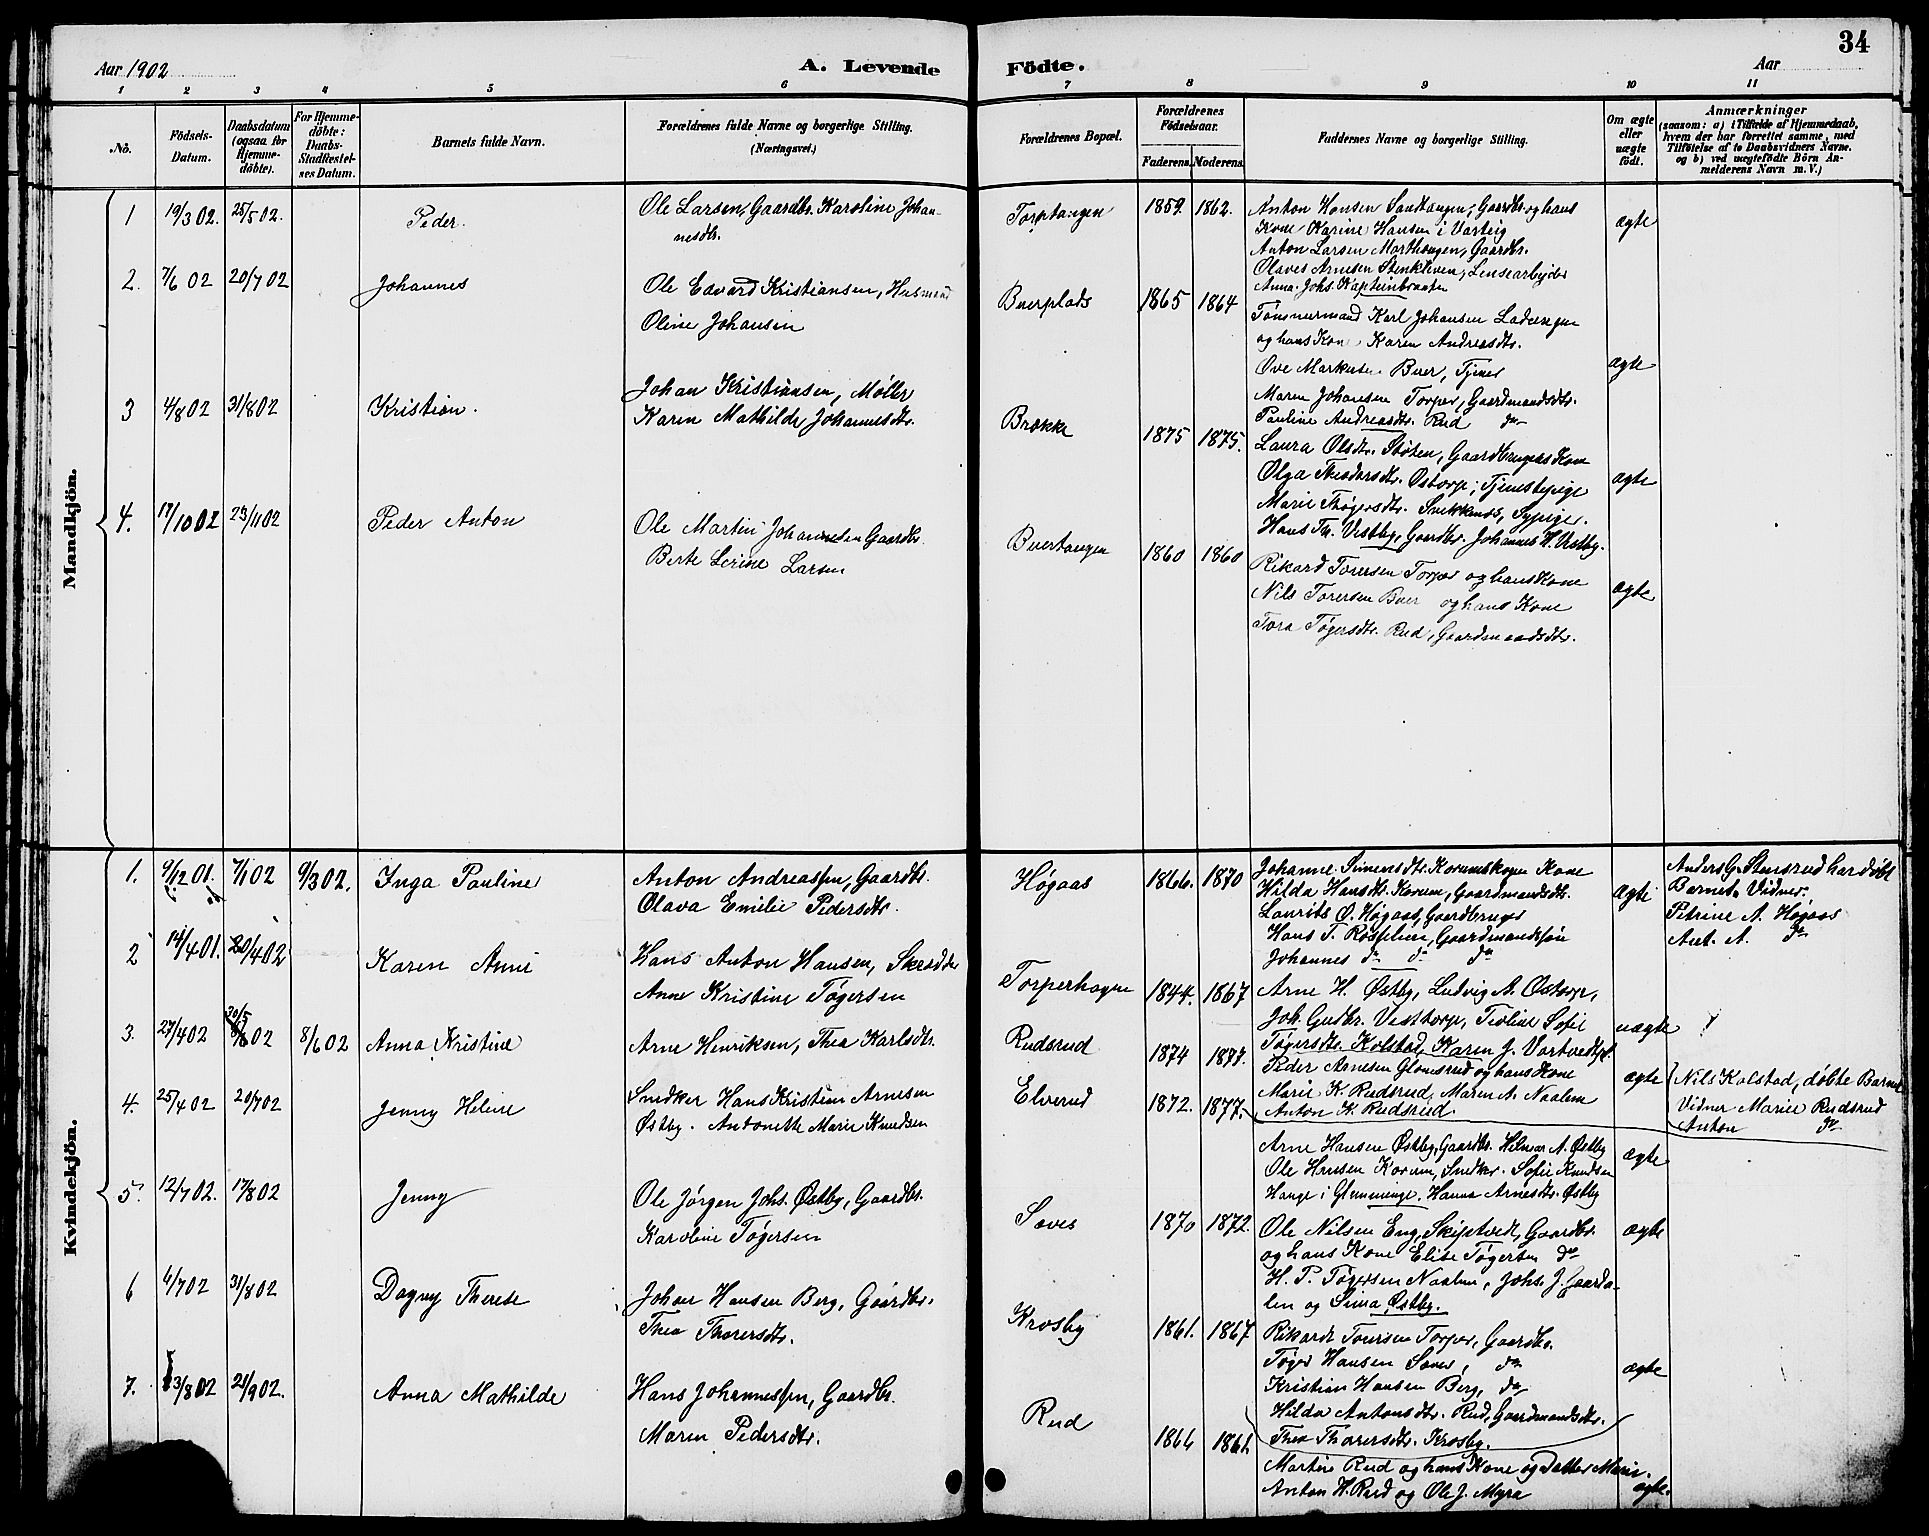 34
Aar 1902
A. Levende Födte.
Aar
1 2 3 4 5 6 7 8 9 10 11
No.
Födsels-Datum.
Daabsdatum (ogsaa for Hjemme-döbte).
For Hjemme-döbte: Daabs-Stadfæstel-ses Datum.
Barnets fulde Navn.
Forældrenes fulde Navne og borgerlige Stilling. (Næringsvei.)
Forældrenes Bopæl.
Forældrenes Födselsaar.
Faderens. Moderens.
Faddernes Navne og borgerlige Stilling.
Om ægte eller uægte födt.
Anmærkninger
(saasom: a) i Tilfælde af Hjemmedaab, hvem der har forrettet samme, med Tilföielse af to Daabsvidners Navne. og b) ved uægtefödte Börn An-melderens Navn m.V.)
Mandkjön.
1 19/3 02. 25/5 02. Peder.
Ole Larsen, Gaardbr. Karoline Johan-
nesdtr.
Torptangen 1859. 1862.
Anton Hansen Sandtangen, Gaardbr. og hans
Kone Karine Hansen i Varteig
Anton Larsen Marthaugen, Gaardbr.
Olaves Arnesen Stenkleven, Lensearbejder
Anna Johs. Kapteinbraaten
ægte
2. 7/6 02 20/7 02 Johannes
Ole Edvard Kristiansen, Husmand
Oline Johansen
Buerplads 1865 1864
Tømmermand Karl Johansen Ladeengen
og hans Kone Karen Andreasdtr.
Ove Markusen Buer, Tjener
Maren Johansen Torper, Gaardmandsdtr.
Pauline Andreasdtr. Rud do
ægte
3 4/8 02 31/8 02 Kristian.
Johan Kristiansen, Møller
Karen Mathilde Johannesdtr.
Brække 1875 1875.
Laura Olsdtr. Støten, Gaardbrugers Kone
Olga Theodorsdtr. Østorp, Tjenestepige
Marie Thøgersdtr. Snekkenes, Sypige.
Hans Th. Vestby, Gaardbr. Johannes H. Vestby.
ægte
4. 17/10 02 23/11 02 Peder Anton
Ole Martin Johannesen Gaardbr.
Berte Serine Larsen
Buertangen 1860 1860
Rikard Toresen Torper og hans Kone
Nils Torersen Buer og hans Kone
Tora Tøgersdtr. Rud, Gaardmandsdtr.
ægte
Kvindekjön.
1. 9/12 01. 7/1 02 9/3 02. Inga Pauline
Anton Andreassen, Gaardbr.
Olava Emilie Pedersdtr.
Høgaas 1866. 1870
Johanne Simensdtr. Korumskogen Kone
Hilda Hansdtr. Korum, Gaardmandsdtr.
Laurits Ø. Høgaas, Gaardbruger
Hans T. Røsselien, Gaardmandssøn
Johannes do do do
ægte
Anders G. Stensrud har døbt
Barnet. Vidner.
Petrine A. Høgaas
Ant. A. do
2 14/4 01. 20/4 02 Karen Anne
Hans Anton Hansen, Skrædder
Anne Kristine Tøgersen
Torperhogne 1844. 1867
Arne H. Østby, Ludvig A. Østorp,
Joh. Gudbr. Vesttorp, Teoline Sofie
Tøgersdtr. Kolstad, Karen J. Vortvedt
uægte
3. 27/4 02 30/5 02 8/6 02 Anna Kristine
Arne Henriksen, Thea Karlsdtr.
Rudsrud 1874 1877.
Peder Arnesen Glomsrud og hans Kone
Marie K. Rudsrud, Maren A. Naalem
Anton K. Rudsrud.
ægte
Nils Kolstad, døbte Barnet
Vidner Marie Rudsrud
Anton do
4. 25/4 02 20/7 02 Jenny Helene
Snedker Hans Kristian Arnesen
Østby. Antonette Marie Knudsen
Elverud 1872. 1877.
Arne Hansen Østby, Gaardbr. Helmear A. Østby
Ole Hansen Korum, Snedker. Sofie Knudsen
Hauge i Glemminge. Hanna Arnesdtr. Østby
ægte
5. 12/7 02. 17/8 02 Jenny
Ole Jørgen Johs. Østby, Gaardbr.
Karoline Tøgersen
Saves 1870 1872.
Ole Nilsen Eng, Skiptvedt, Gaardbr.
og hans Kone Elise Tøgersen do
H. P. Tøgersen Naalum, Johs. J. Gaarda-
len og Sina Østby.
ægte
6 4/7 02 31/8 02 Dagny Therese
Johan Hansen Berg, Gaardbr.
Thea Thorersdtr.
Krosby 1861. 1867
Rikardt Toursen Torper, Gaardbr.
Tøger Hansen Saves, do
Kristian Hansen Berg, do
Hilda Antonsdtr. Rud, Gaardmandsdtr.
Thea Thorersdtr. Krosby.
ægte
7. 3/8 02 21/9 02. Anna Mathilde
Hans Johannessen, Gaardbr.
Maren Pedersdtr.
Rud 1864 1861
Martin Rud og hans Kone og Datter Marie.
Anton H. Rud og Ole J. Myra
ægte.